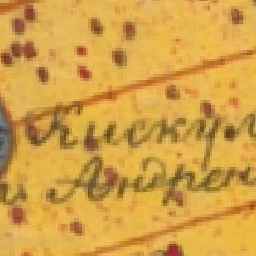 Кискул
Андрен